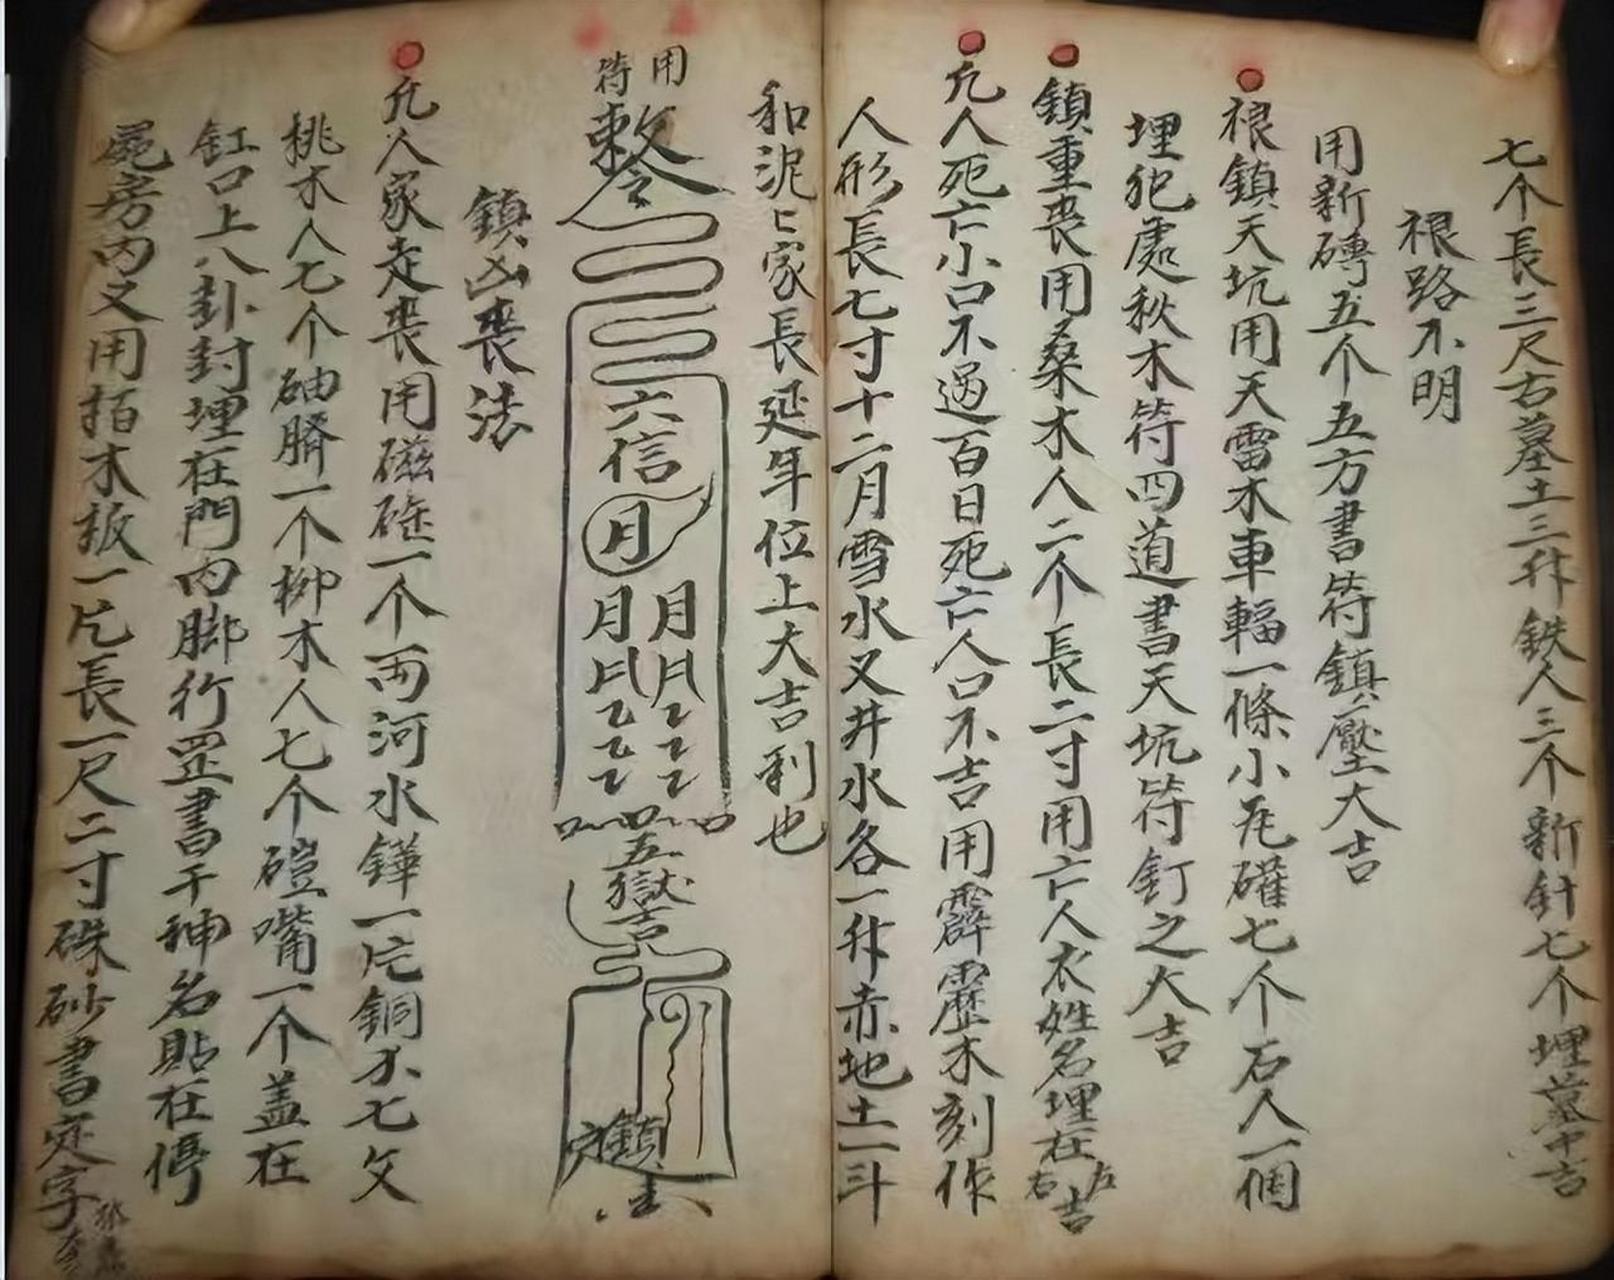 七个長三尺古墓土三升鉄人三个新針七个埋墓中吉
祿路不明
用新磚五个五方書符鎮壓大吉
祿鎮天坑用天雷木車輻一條小瓦礶七个石人一個
埋犯處秋木符四道書天坑符釘之大吉
鎮重喪用桑木人二个長二寸用亡人衣姓名埋在左右吉
凢人死亡小口不過百日死亡人口不吉用霹靂木刻作
人形長七寸十二月雪水又井水各一升赤地土一斗
和泥匕家長延年位上大吉利也
用符
敕令
六信
月
月月
五獄吉
鎮定
鎮凶喪法
凢人家走喪用磁碗一个両河水鏵一片銅不七文
桃木人七个䂙臍一个柳木人七个磑嘴一个盖在
缸口上八卦封埋在門內脚行罡書干神名貼在停
屍房內又用拍木板一片長一尺二寸硃砂書定字